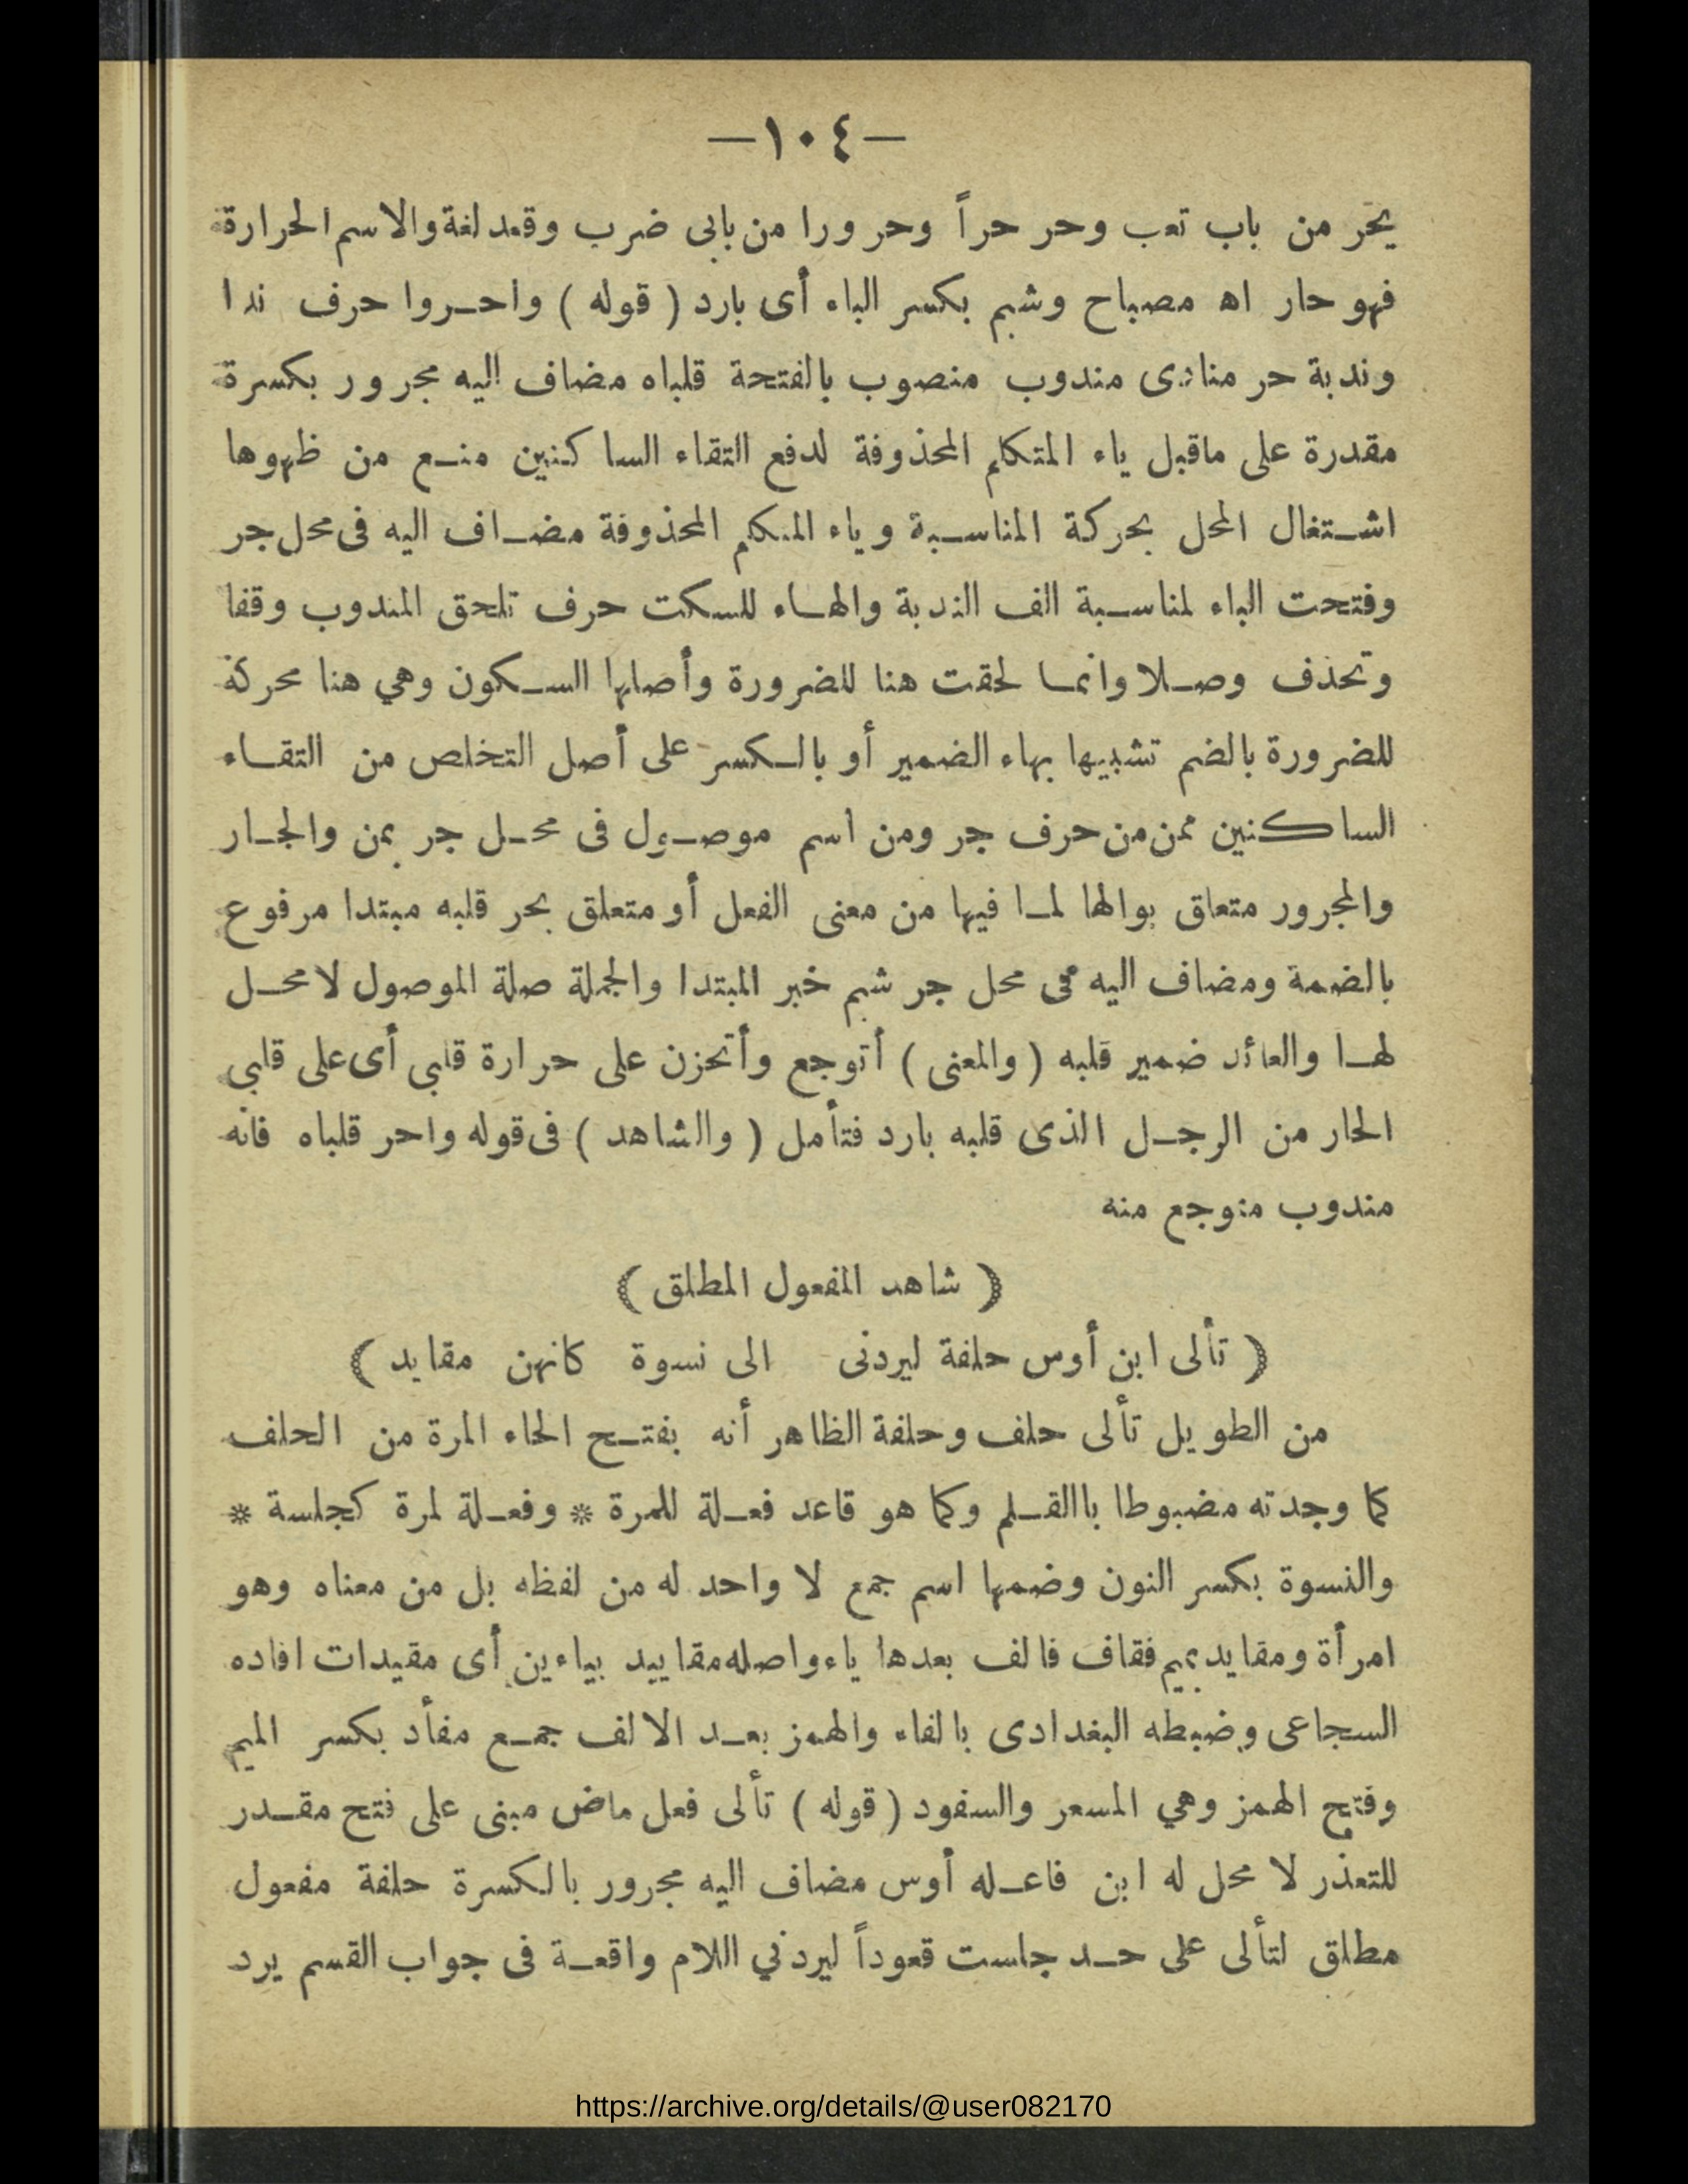 —١٠٤—
يحر من باب تعب وحر حراً وحرورا من بابى ضرب وقعد لغة والاسم الحرارة
فهو حار اه مصباح وشبم بكسر الباء أى بارد ( قوله ) واحروا حرف ندا
وندبة حر منادى مندوب منصوب بالفتحة قلباه مضاف اليه مجرور بكسرة
مقدرة على ماقبل ياء المتكلم المحذوفة لدفع التقاء الساكنين منع من ظهوها
اشتغال المحل بحركة المناسبة وياء المتكلم المحذوفة مضاف اليه فى محل جر
وفتحت الباء لمناسبة الف الندبة والهاء للسكت حرف تلحق المندوب وقفا
وتحذف وصلا وانما لحقت هنا للضرورة وأصلها السكون وهي هنا محركة
للضرورة بالضم تشبيها بهاء الضمير أو بالكسر على أصل التخلص من التقاء
الساكنين ممن من حرف جر ومن اسم موصول فى محل جر بمن والجار
والمجرور متعلق بوالها لما فيها من معنى الفعل أو متعلق بحر قلبه مبتدا مرفوع
بالضمة ومضاف اليه فى محل جر شبم خبر المبتدا والجملة صلة الموصول لامحل
لها والعائد ضمير قلبه ( والمعنى ) أتوجع وأتحزن على حرارة قلبي أى على قلبي
الحار من الرجل الذى قلبه بارد فتأمل ( والشاهد ) فى قوله واحر قلباه فانه
مندوب متوجع منه
( شاهد المفعول المطلق )
( تألى ابن أوس حلفة ليردنى الى نسوة كانهن مقايد )
من الطويل تألى حلف وحلفة الظاهر أنه بفتح الحاء المرة من الحلف
كما وجدته مضبوطا باالقلم وكما هو قاعد فعلة للمرة * وفعلة لمرة كجلسة *
والنسوة بكسر النون وضمها اسم جمع لا واحد له من لفظه بل من معناه وهو
امرأة ومقايد بميم فقاف فالف بعدها ياء واصله مقاييد بياءين أى مقيدات افاده
السجاعى وضبطه البغدادى بالفاء والهمز بعد الالف جمع مفأد بكسر الميم
وفتح الهمز وهي المسعر والسفود ( قوله ) تألى فعل ماض مبنى على فتح مقدر
للتعذر لا محل له ابن فاعله أوس مضاف اليه مجرور بالكسرة حلفة مفعول
مطلق لتألى على حد جلست قعوداً ليردني اللام واقعة فى جواب القسم يرد
https://archive.org/details/@user082170